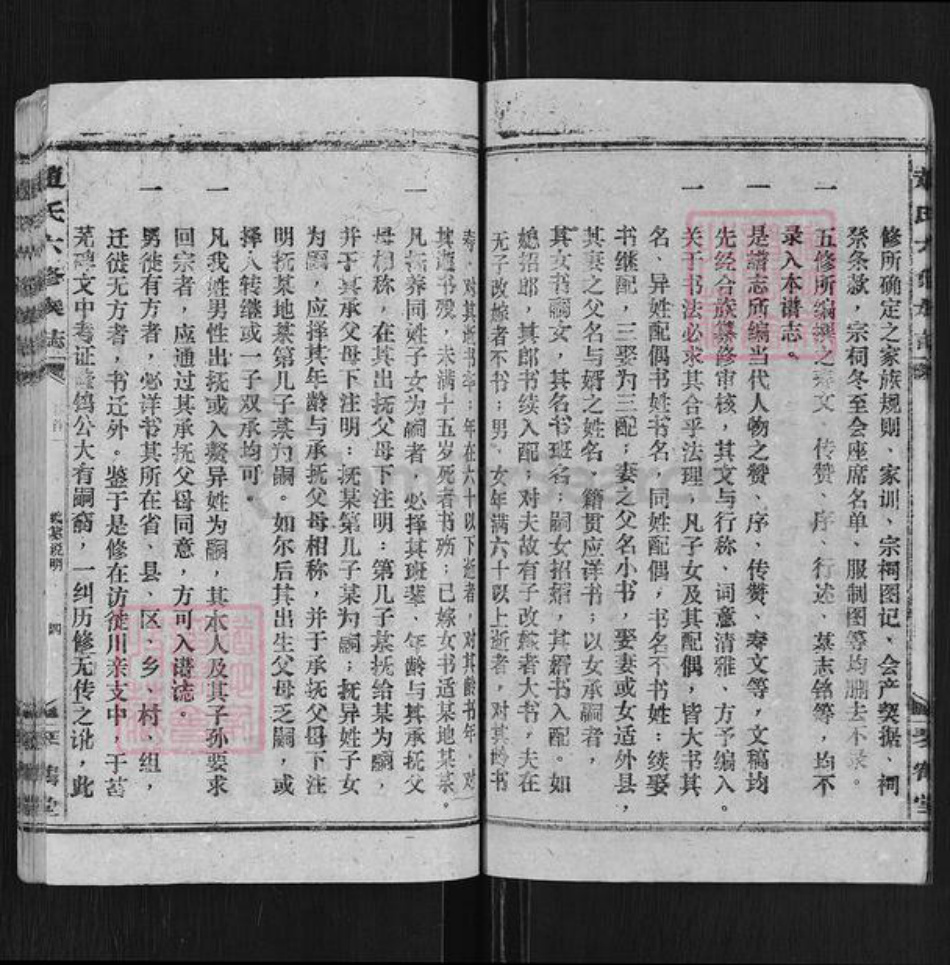 修所确定之家族规则、家训、宗祠图记、会产契据、祠
祭条款，宗祠冬至会座席名单、服制图等均删去不录。
一 五修所编撰之寿文、传赞、序、行述、墓志铭等，均不
录入本谱志。
一 是谱志所编当代人物之赞、序、传赞、寿文等，文稿均
先经合族纂修审核，其文与行称、词意清雅、方予编入。
一 关于书法必求其合乎法理，凡子女及其配偶，皆大书其
名、异姓配偶书姓书名，同姓配偶，书名不书姓；续娶
书继配，三娶为三配；妻之父名小书，娶妻或女适外县，
其妻之父名与婿之姓名，籍贯应详书；以女承嗣者，
其女书嗣女，其名书班名；嗣女招婿，其婿书入配。如
媳招郎，其郎书续入配；对夫故有子改嫁者大书，夫在
无子改嫁者不书；男、女年满六十以上逝者，对其龄书
寿、对其逝书卒；年在六十以下逝者，对其龄书年，对
其逝书殁，未满十五岁死者书殇；已嫁女书适某地某某。
一 凡抚养同姓子女为嗣者，必择其班辈、年龄与其承抚父
母相称，在其出抚父母下注明：第几子某抚给某为嗣，
并于其承父母下注明：抚某第几子某为嗣；抚异姓子女
为嗣，应择其年龄与承抚父母相称，并于承抚父母下注
明抚某地某第几子某为嗣。如尔后其出生父母乏嗣，或
择人转继或一子双承均可。
一 凡我姓男性出抚或入赘异姓为嗣，其本人及其子孙要求
回宗者，应通过其承抚父母同意，方可入谱志。
一 男徙有方者，必详书其所在省、县、区、乡、村、组，
迁徙无方者，书迁外。鉴于是修在访徙川亲支中，于荅
芜碑文中考证隆钨公大有嗣裔，一纠历修无传之讹，此
赵氏六修族志
凡例说明
四
琴鹤堂